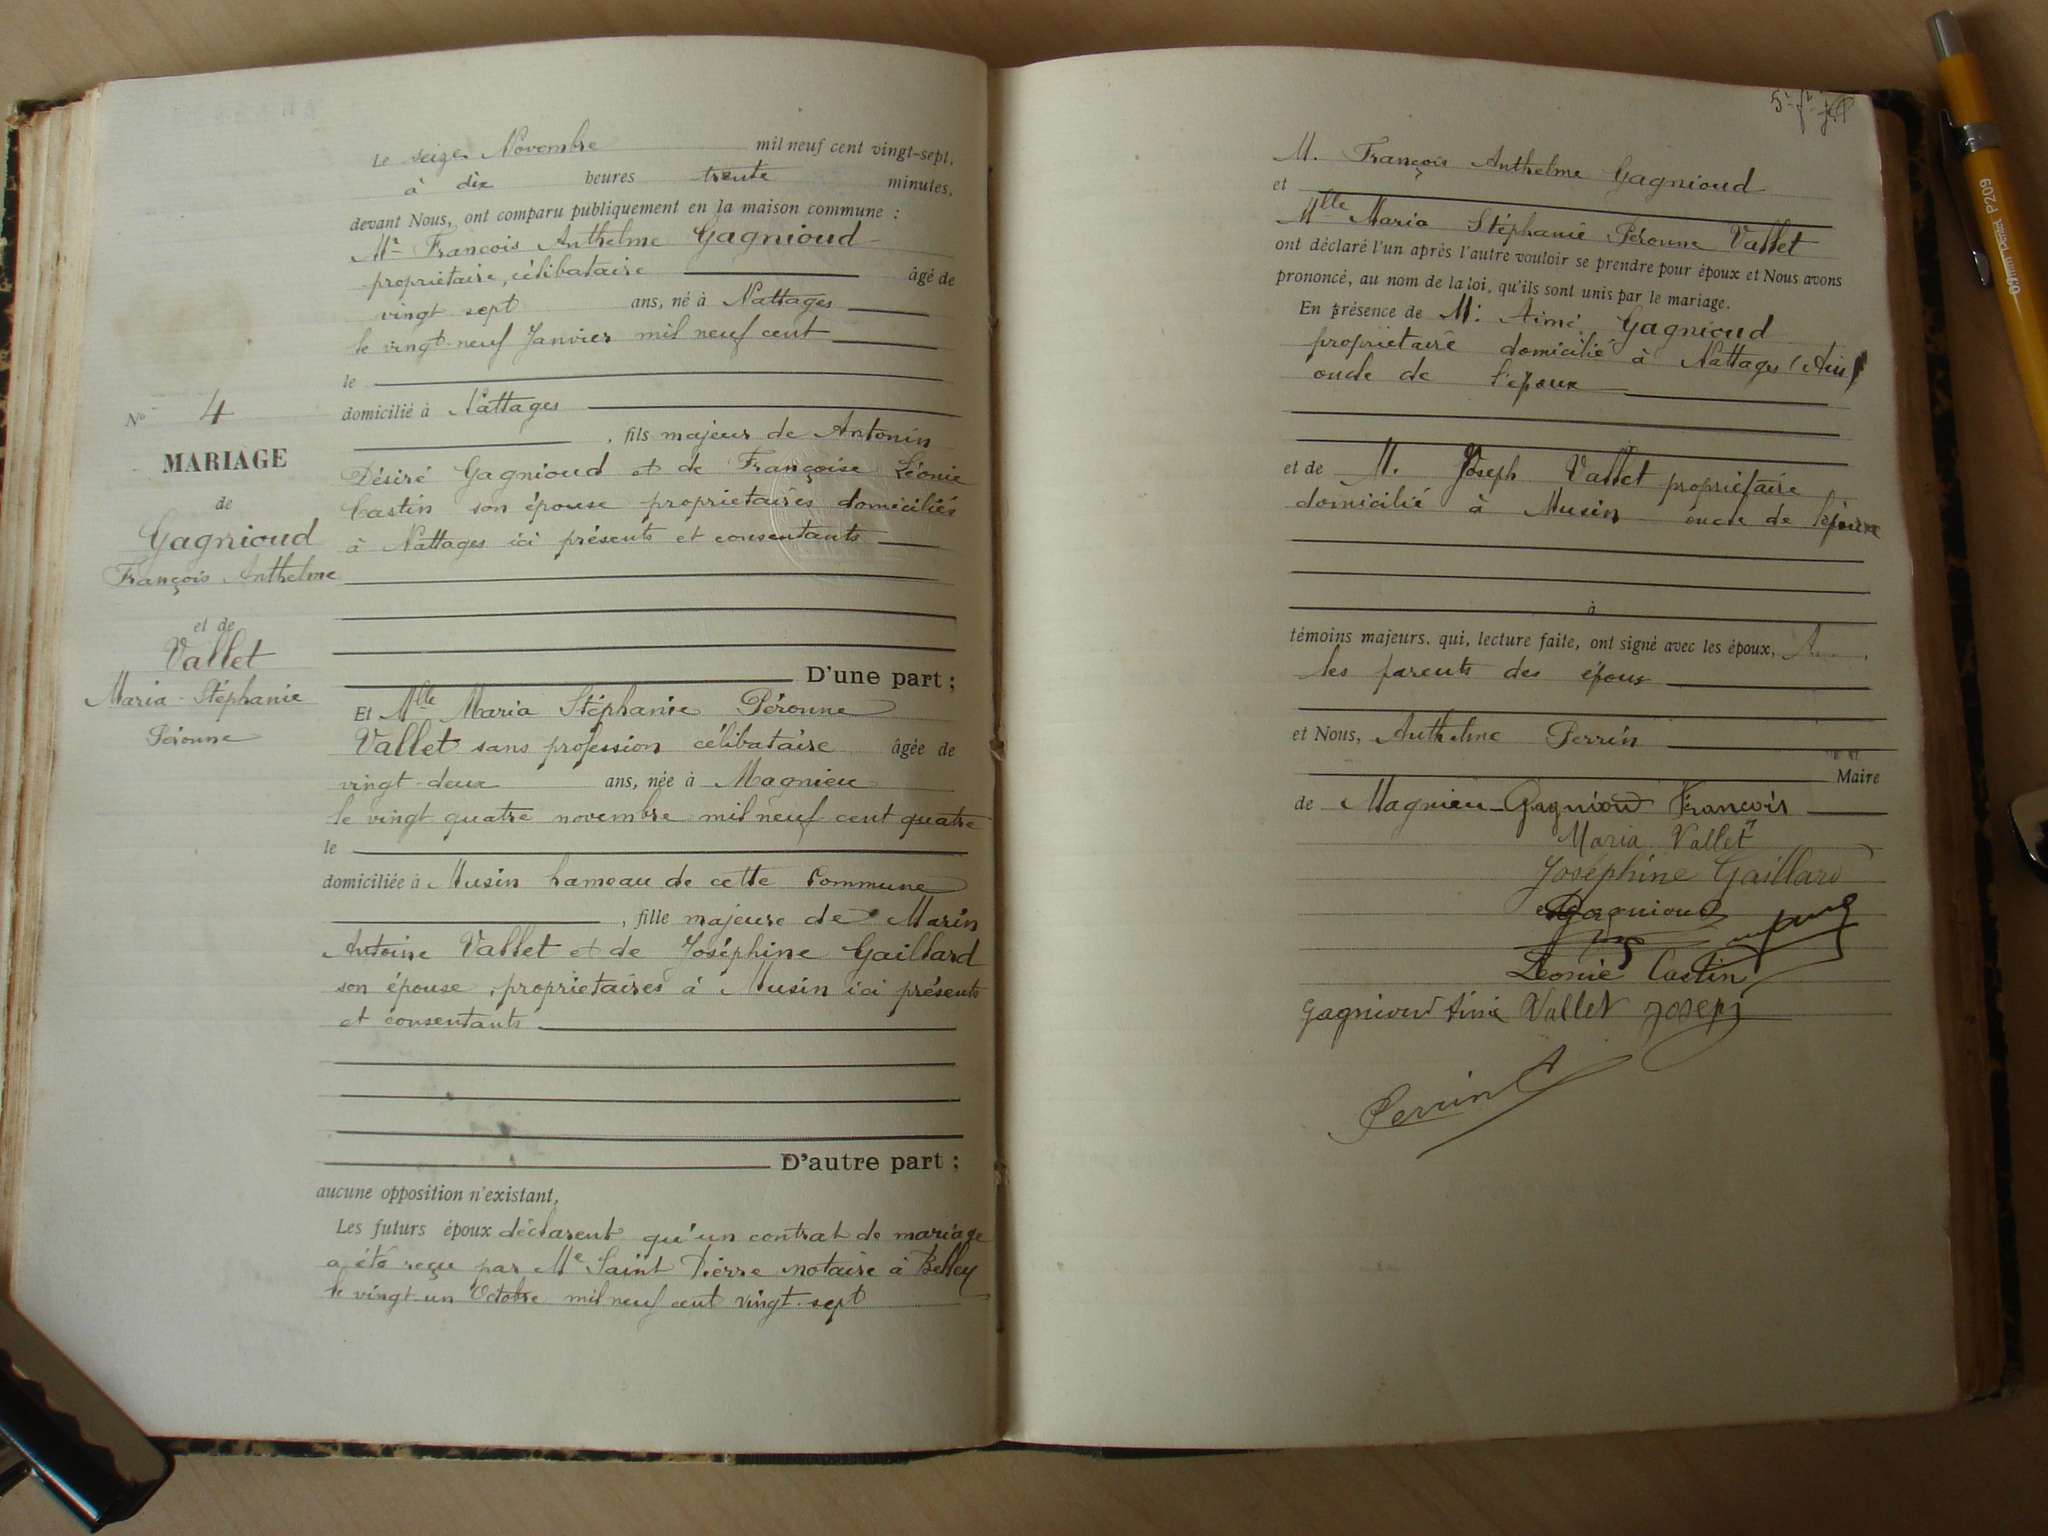 Le seize Novembre mil neuf cent vingt-sept,
à dix heures trente minutes,
devant Nous, ont comparu publiquement en la maison commune :
Mr François Anthelme Gagnioud
propriétaire, célibataire âgé de
vingt sept ans, né à Nattages
le vingt-neuf Janvier mil neuf cent
le
domicilié à Nattages
, fils majeur de Antonin
Désiré Gagnioud et de Françoise Léonie
Castin son épouse propriétaires domiciliés
à Nattages ici présents et consentants
D'une part ;
Et Mlle Maria Stéphanie Péronne
Vallet sans profession célibataire âgée de
vingt-deux ans, née à Magnieu
le vingt quatre novembre mil neuf cent quatre
le
domiciliée à Musin hameau de cette Commune
, fille majeure de Marin
Antoine Vallet et de Joséphine Gaillard
son épouse, propriétaires à Musin ici présents
et consentants
D'autre part ;
aucune opposition n'existant,
Les futurs époux déclarent qu'un contrat de mariage
a été reçu par Me Saint Pierre notaire à Belley
le vingt-un Octobre mil neuf cent vingt-sept
No 4
MARIAGE
de
Gagnioud
François Anthelme
et de
Vallet
Maria-Stéphanie
Péronne
M. François Anthelme Gagnioud
et
Mlle Maria Stéphanie Péronne Vallet
ont déclaré l'un après l'autre vouloir se prendre pour époux et Nous avons
prononcé, au nom de la loi, qu'ils sont unis par le mariage.
En présence de M. Aimé Gagnioud
propriétaire domicilié à Nattages (Ain)
oncle de l'époux
et de M. Joseph Vallet propriétaire
domicilié à Musin oncle de l'épouse
à
témoins majeurs, qui, lecture faite, ont signé avec les époux,
les parents des époux
et Nous, Anthelme Perrin
Maire
de Magnieu Gagnioud François
Maria Vallet
Joséphine Gaillard
Gagnioud
Léonie Castin
Gagnioud Aimé Vallet Joseph
Perrin A
0,9mm Pentel P209